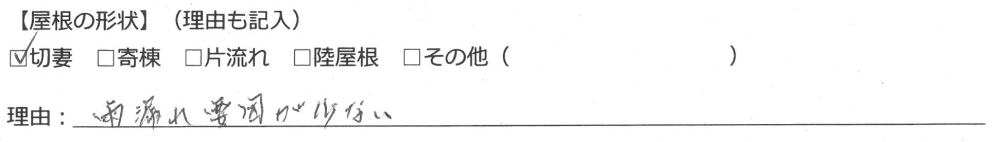 【屋根の形状】（理由も記入）
☑切妻 □寄棟 □片流れ □陸屋根 □その他（ ）
理由：雨漏れ要因が少ない